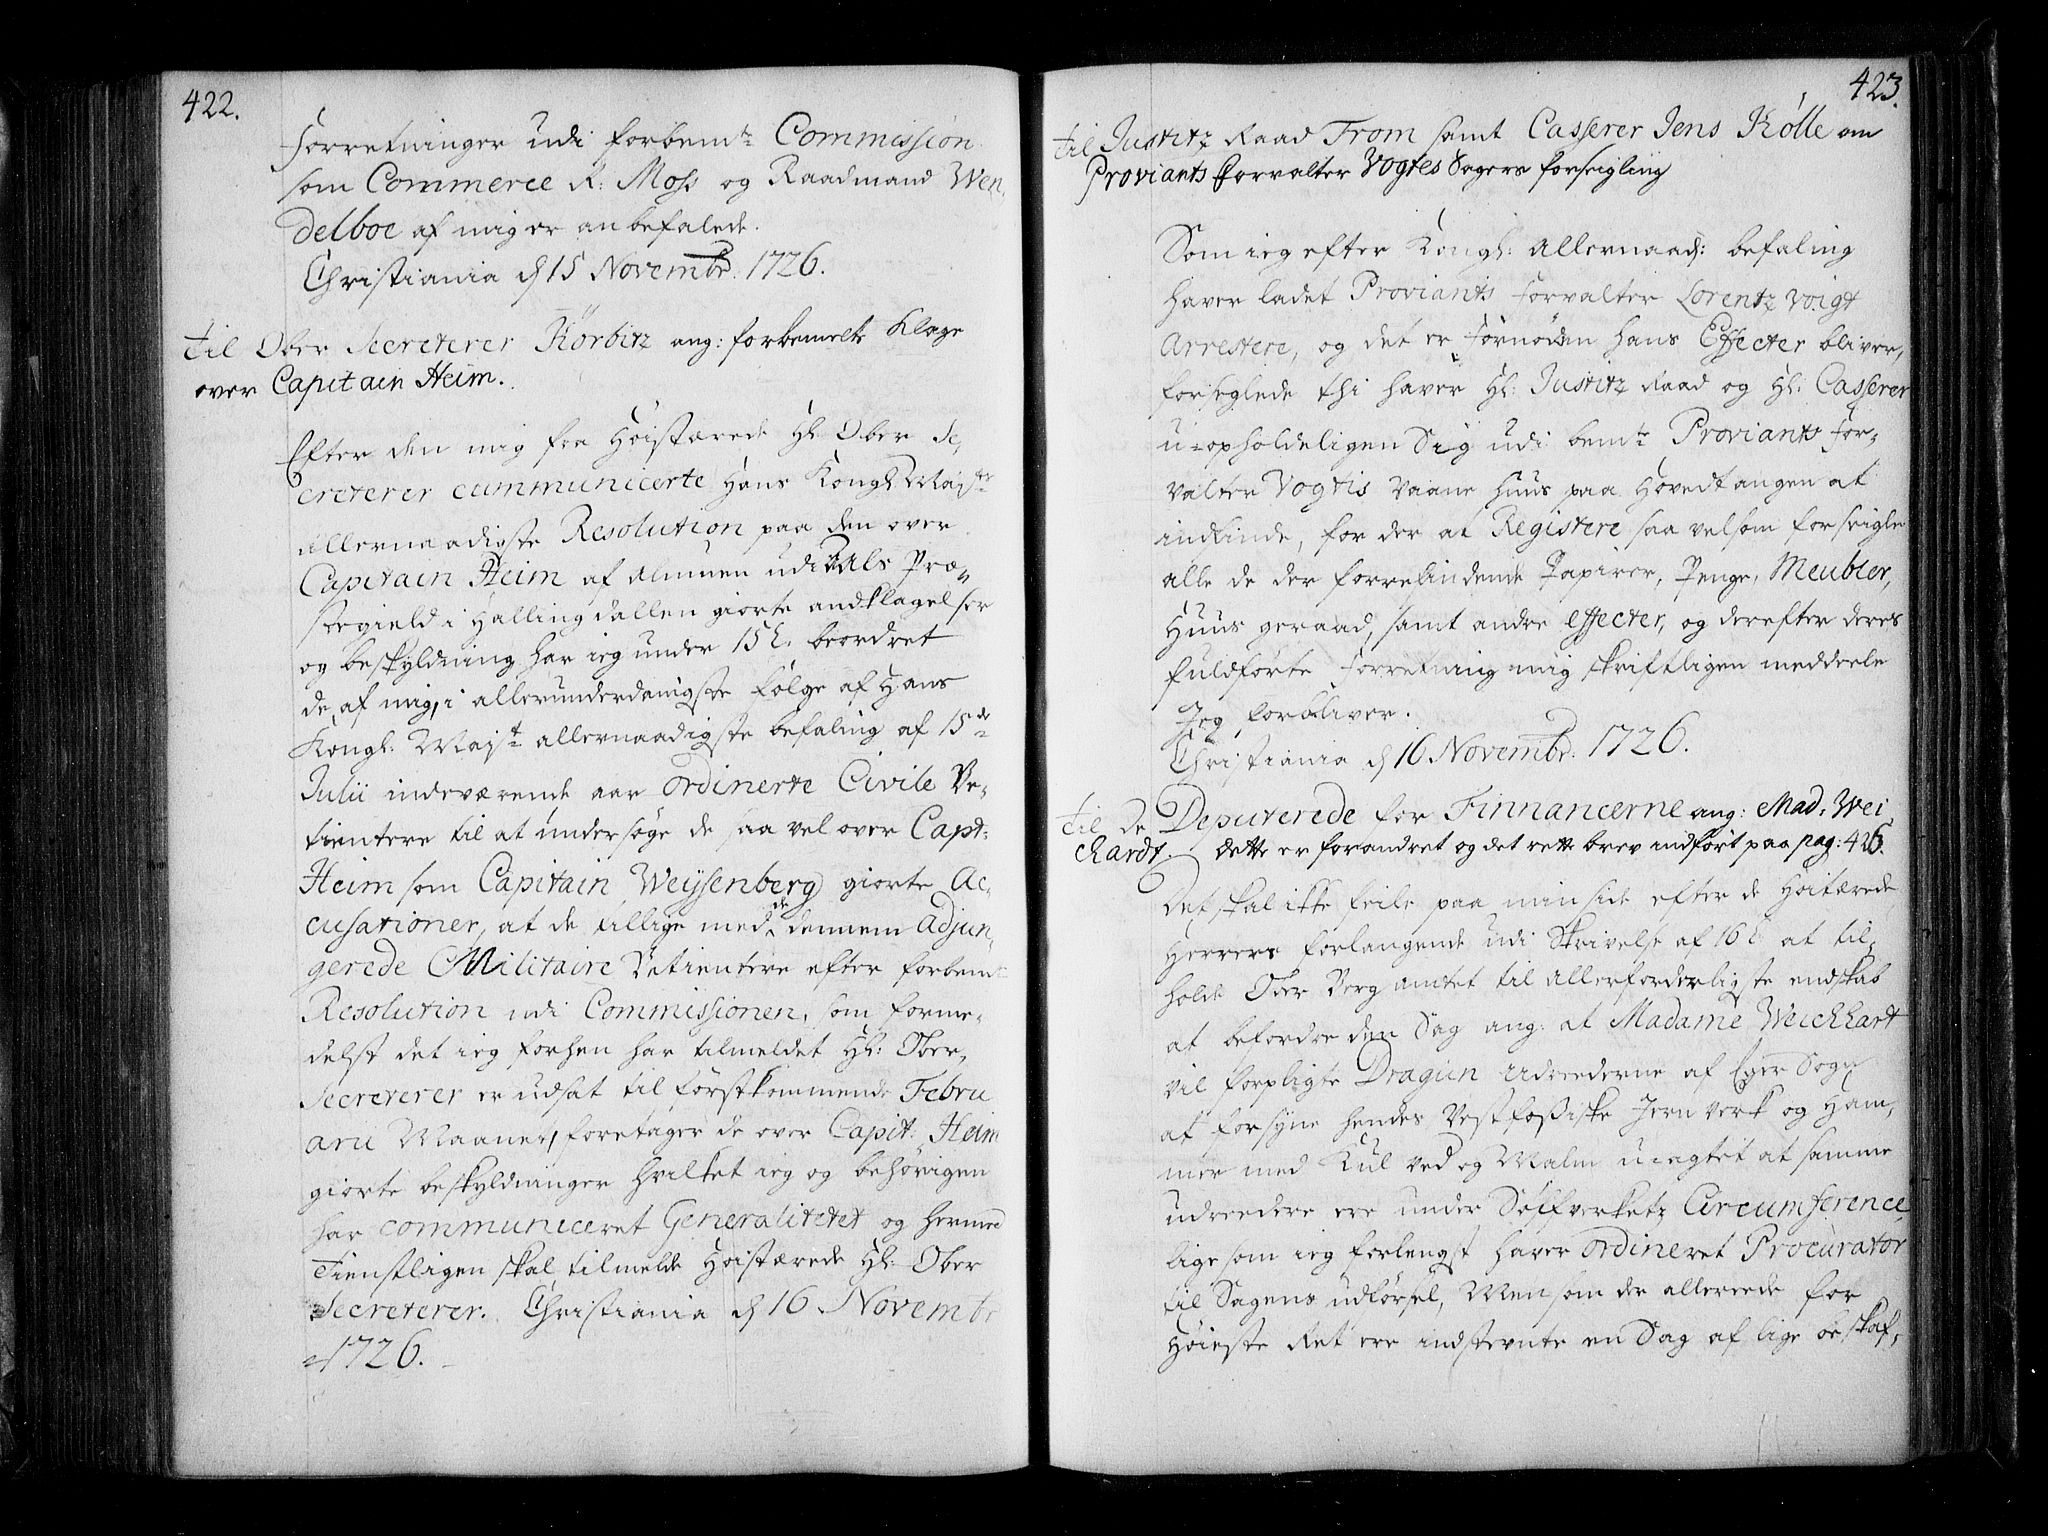 422.
Forretninger udi forbemte Commission
som Commerce R: Moss og Raadmand Wen,
delboe af mig er anbefalede.
Christiania d 15 Novembr. 1726.
til Ober Secreterer Körbitz ang: forbemelte Klage
over Capitain Heim.
Efter den mig fra Höistærede Hl Ober Se,
creterer cummunicerte Hans Kongl Mayts
allernaadigste Resolution paa den over
Capitain Heim af Almuen udi Aals Præ,
stegield i Hallingdallen giorte andklagelser
og beskyldning har ieg under 15 h. beordret
de af mig, i allerunderdanigste følge af Hans
Kongl: Mayts allernaadigste befaling af 15de
Julii indeværende aar ordinerte Civile Be,
tientere til at undersøge de saa vel over Capt:
Heim som Capitain Weysenberg giorte Ac,
cusationer, at de tillige med de dennem adjun,
gerede Militaire Betientere efter forbemte
Resolution udi Commissionen, som forme,
delst det ieg forhen har tilmeldet Hl: Ober,
Secreterer er udsat til förstkommende Febru
arii Maanet, foretager de over Capit. Heim
giorte beskyldninger hvilket ieg og behörigen
har communiceret Generalitetet og hermed
Tienstligen skal tilmelde Höistærede Hl: Ober
Secreterer. Christiania d 16 Novembr
1726.
423.
til Justitz Raad From samt Casserer Jens Kölle om
Proviants forvalter Vogtes Sagers forseigling
Som ieg efter Kongl: allernaad: befaling
haver ladet Proviants Forvalter Lorentz Voigt
Arrestere, og det er fornöden hans Effecter bliver,
forseglede thi haver Hl: Justitz Raad og Hl: Casserer
u-opholdeligen Sig udi bemte Proviants For,
valter Vogtis vaane Huus paa Hovedtangen at
indfinde, for der at Registere saa velsom forseigle
alle de der forrefindende Papirer, Penge, Meubler,
Huus geraad, samt andre effecter, og derefter deres
fuldförte Forretning mig skriftligen meddeele
Jeg forbliver.
Christiania d 16 Novembr. 1726.
til De Deputerede for Finnancerne ang: Mad. Wei,
chardt. dette er forandret og det rette brev indfört paa pag: 426.
Det skal ikke feile paa min side efter de Höitærede
Herrers forlangende udi Skrivelse af 16 at til,
holde Ober Berg amtet til allerforderligste endskab
at befordre den Sag ang: at Madame Weichhart
vil forpligte Dragun udreederne af Eger Sogn
at forsyne hendes Vestfossiske Jern Verk og Ham,
mer med Kul ved og Malm uagtet at samme
udreedere ere under Sölfverketz Circumference
lige som ieg forlengst haver ordineret Procurator
til Sagens udförsel, Men som der allereede for
Höieste Ret ere indstevnte en Sag af lige beskaf,